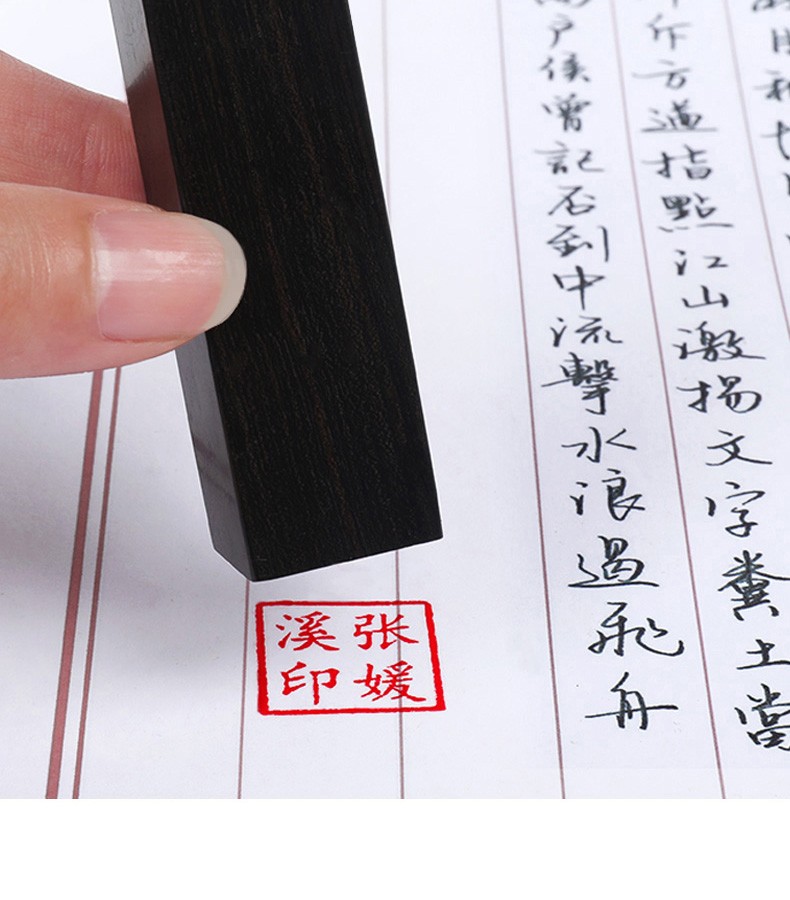 斥方遒指點江山激揚文字糞土當
户侯曾記否到中流擊水浪遏飛舟
张媛
溪印